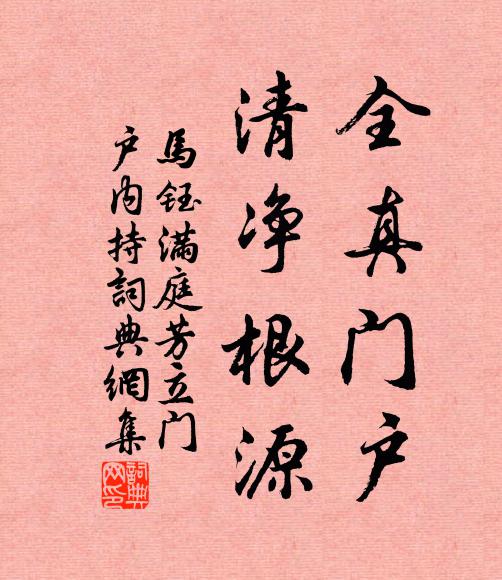 全真门户
清净根源
馬鈺满庭芳立门
户内持詞典網集
詞典
网印